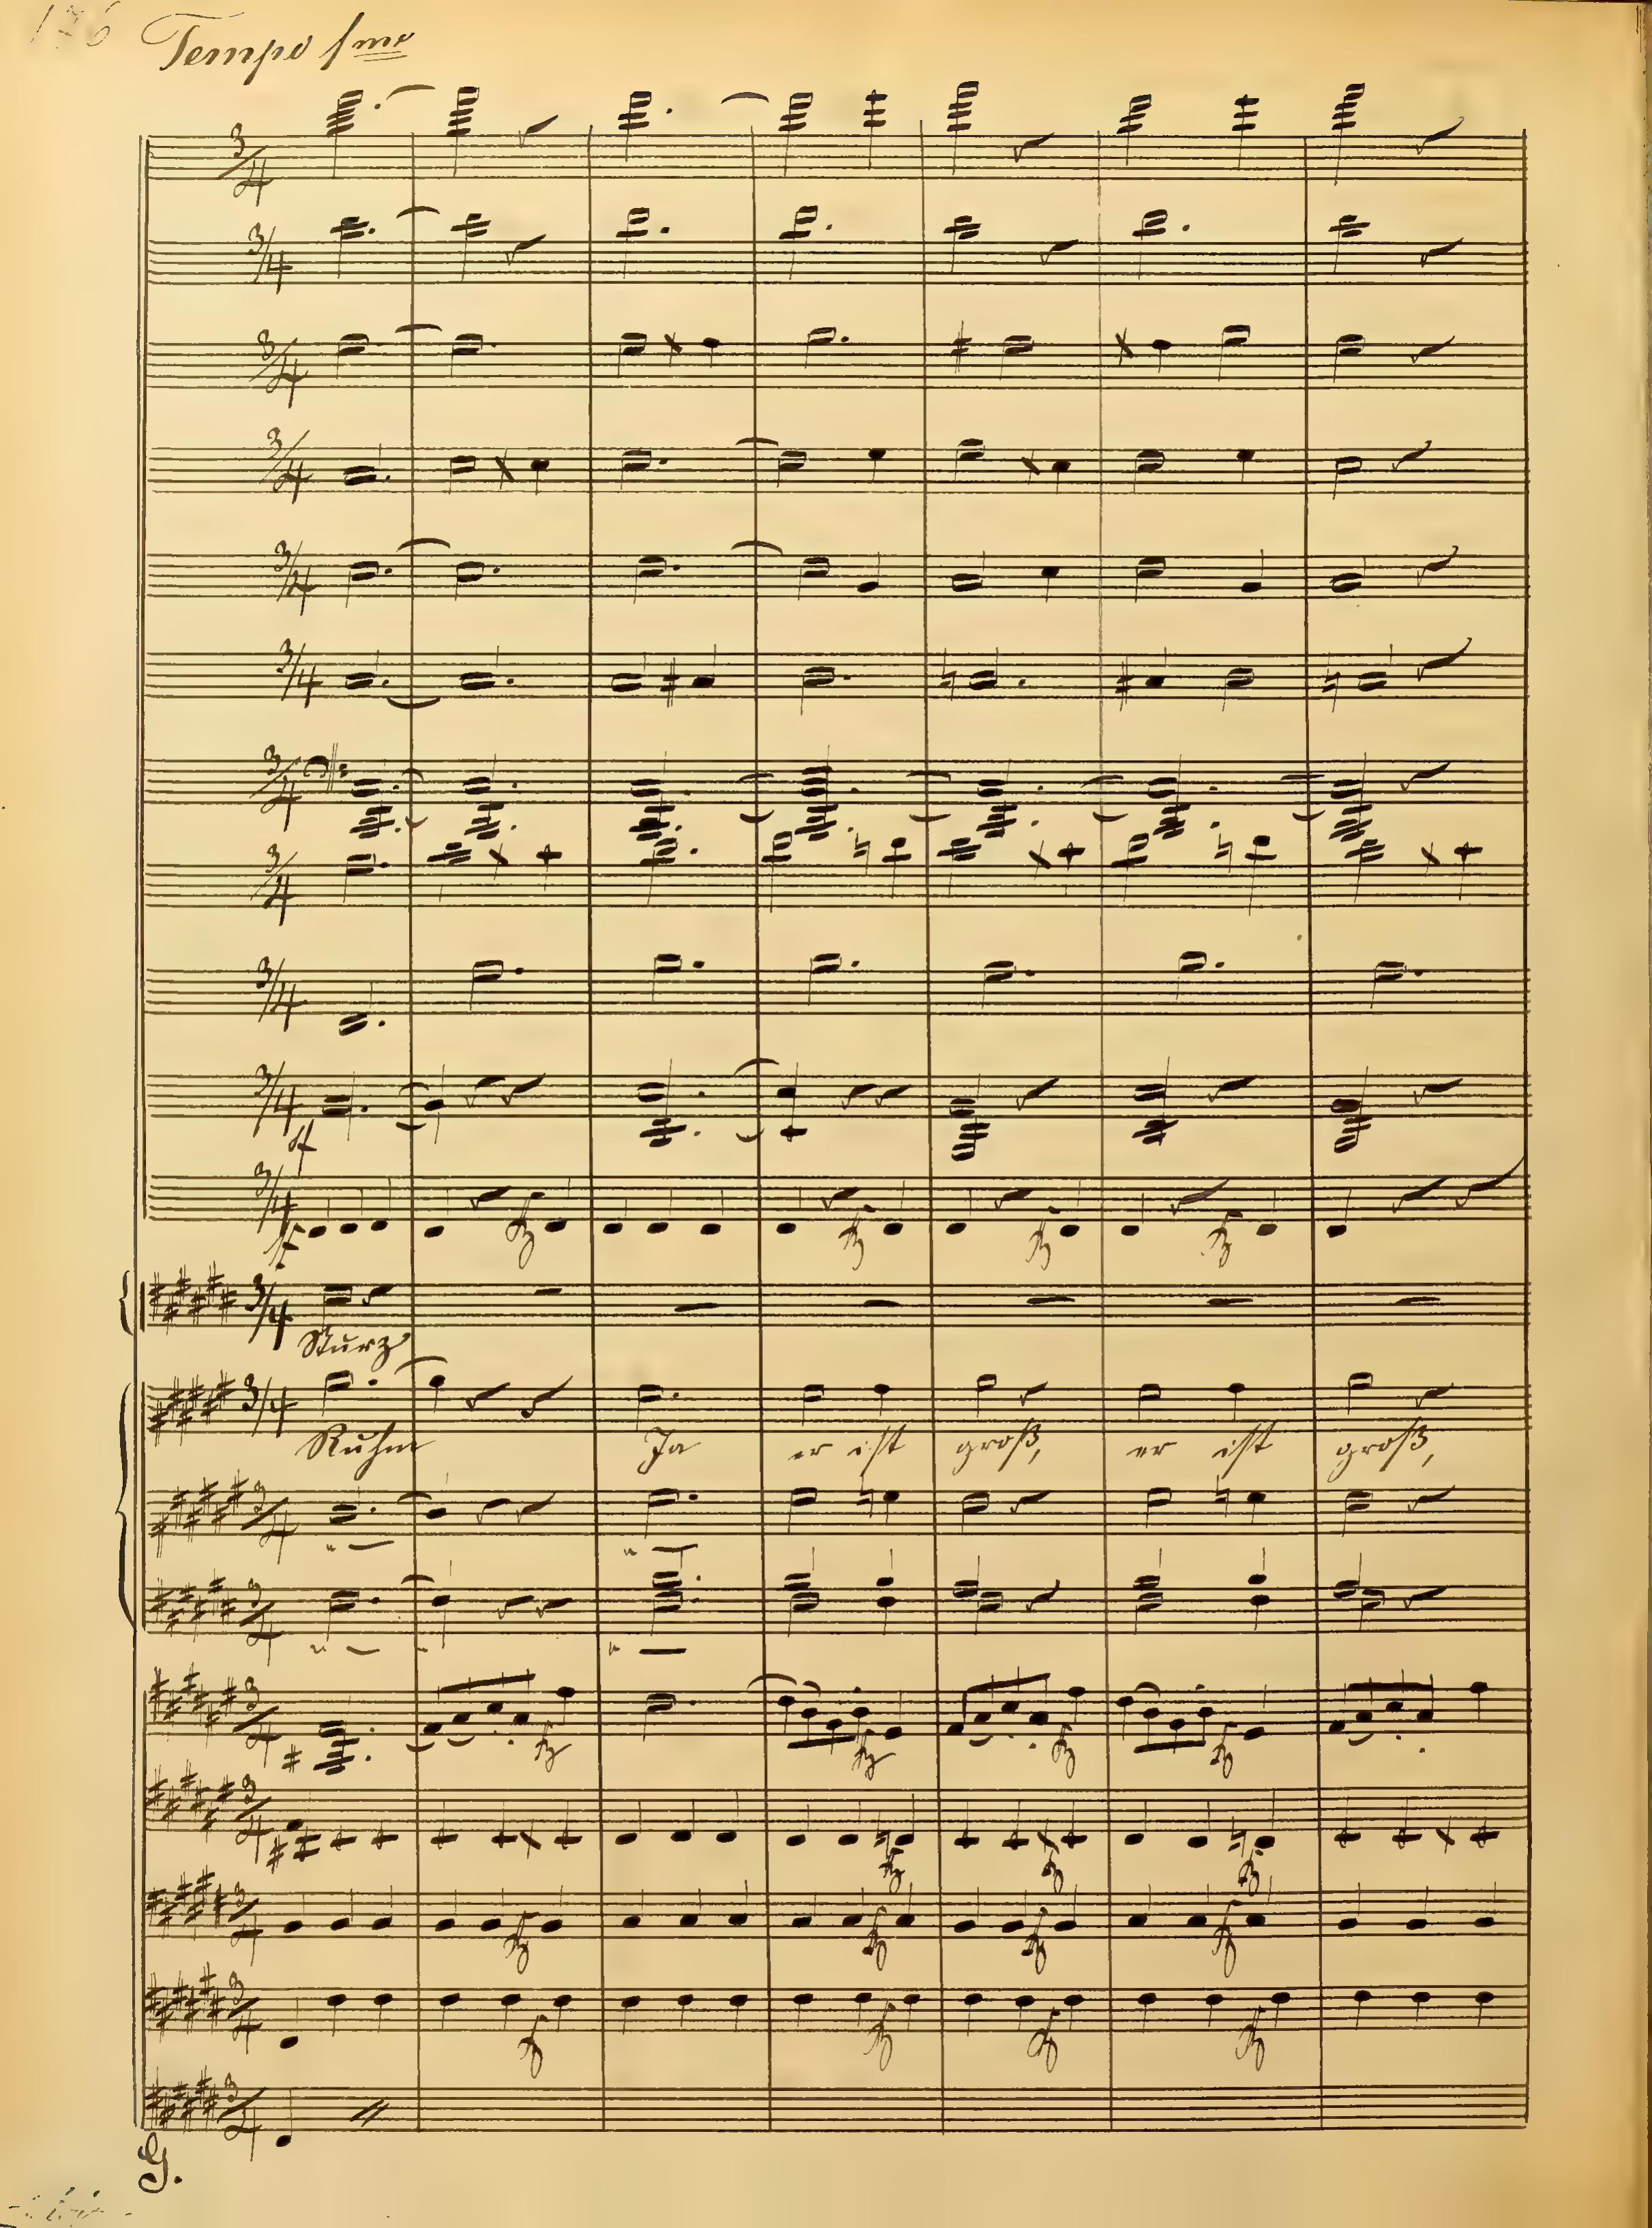 Tempo 1mo
Sturz
Ruhm Ja er ist groß, er ist groß,
G.